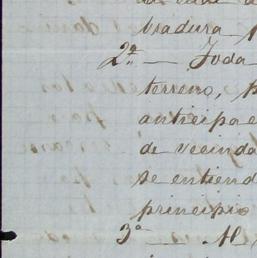 bradura
2ª — Toda
terreno, p
anticipa e
de vecinda
se entiend
principio
3ª — Al